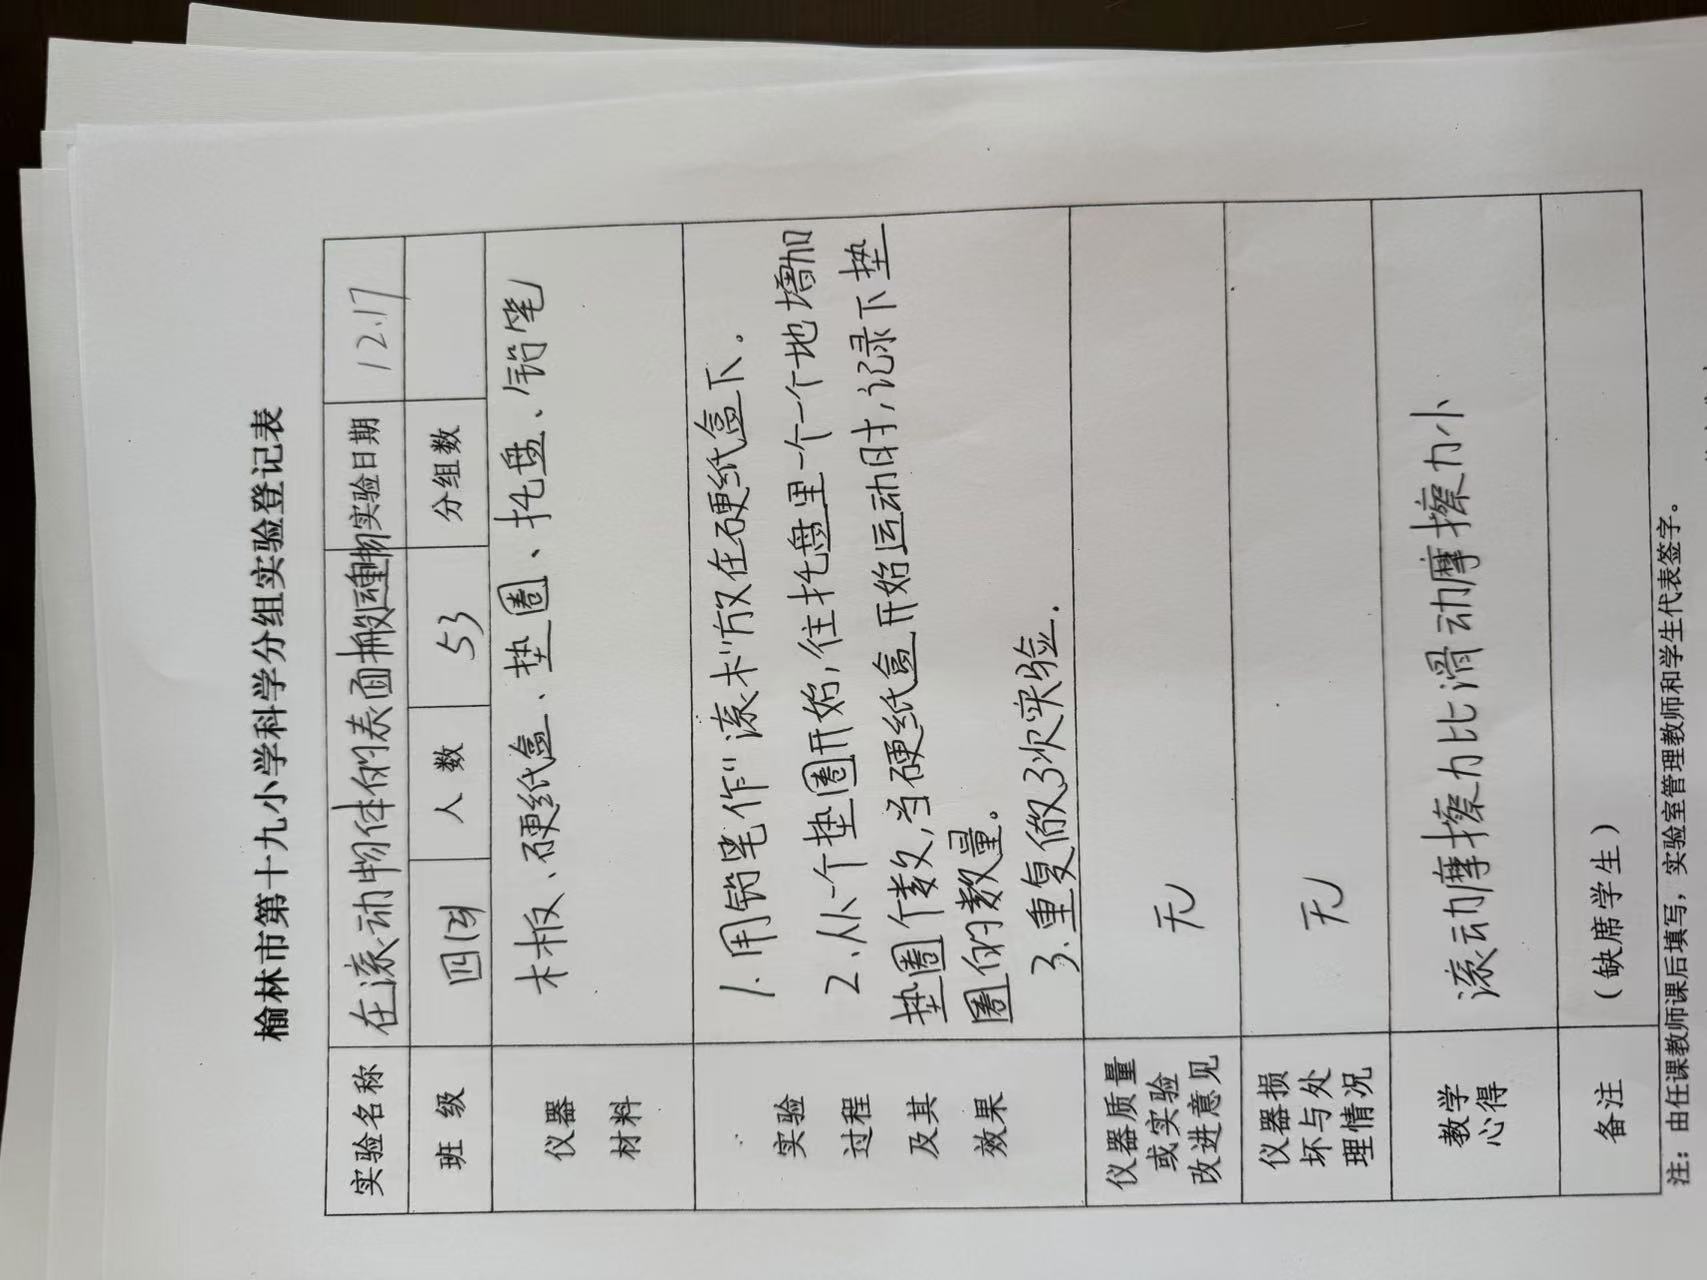 榆林市第十九小学科学分组实验登记表
实验名称 在滚动物体的表面搬运重物 实验日期 12.17
班 级 人 数 53 分组数
仪器 材料 木板、硬纸盒、垫圈、托盘、铅笔
实验 过程 及其 效果
1.用铅笔作"滚木"放在硬纸盒下.
2.从一个垫圈开始,往托盘里一个一个地增加
垫圈个数,当硬纸盒开始运动时,记录下垫
圈的数量。
3.重复做3次实验.
仪器质量 或实验 改进意见 无
仪器损 坏与处 理情况 无
教学 心得 滚动摩擦力比滑动摩擦力小
备注 （缺席学生）
注：由任课教师课后填写，实验室管理教师和学生代表签字。